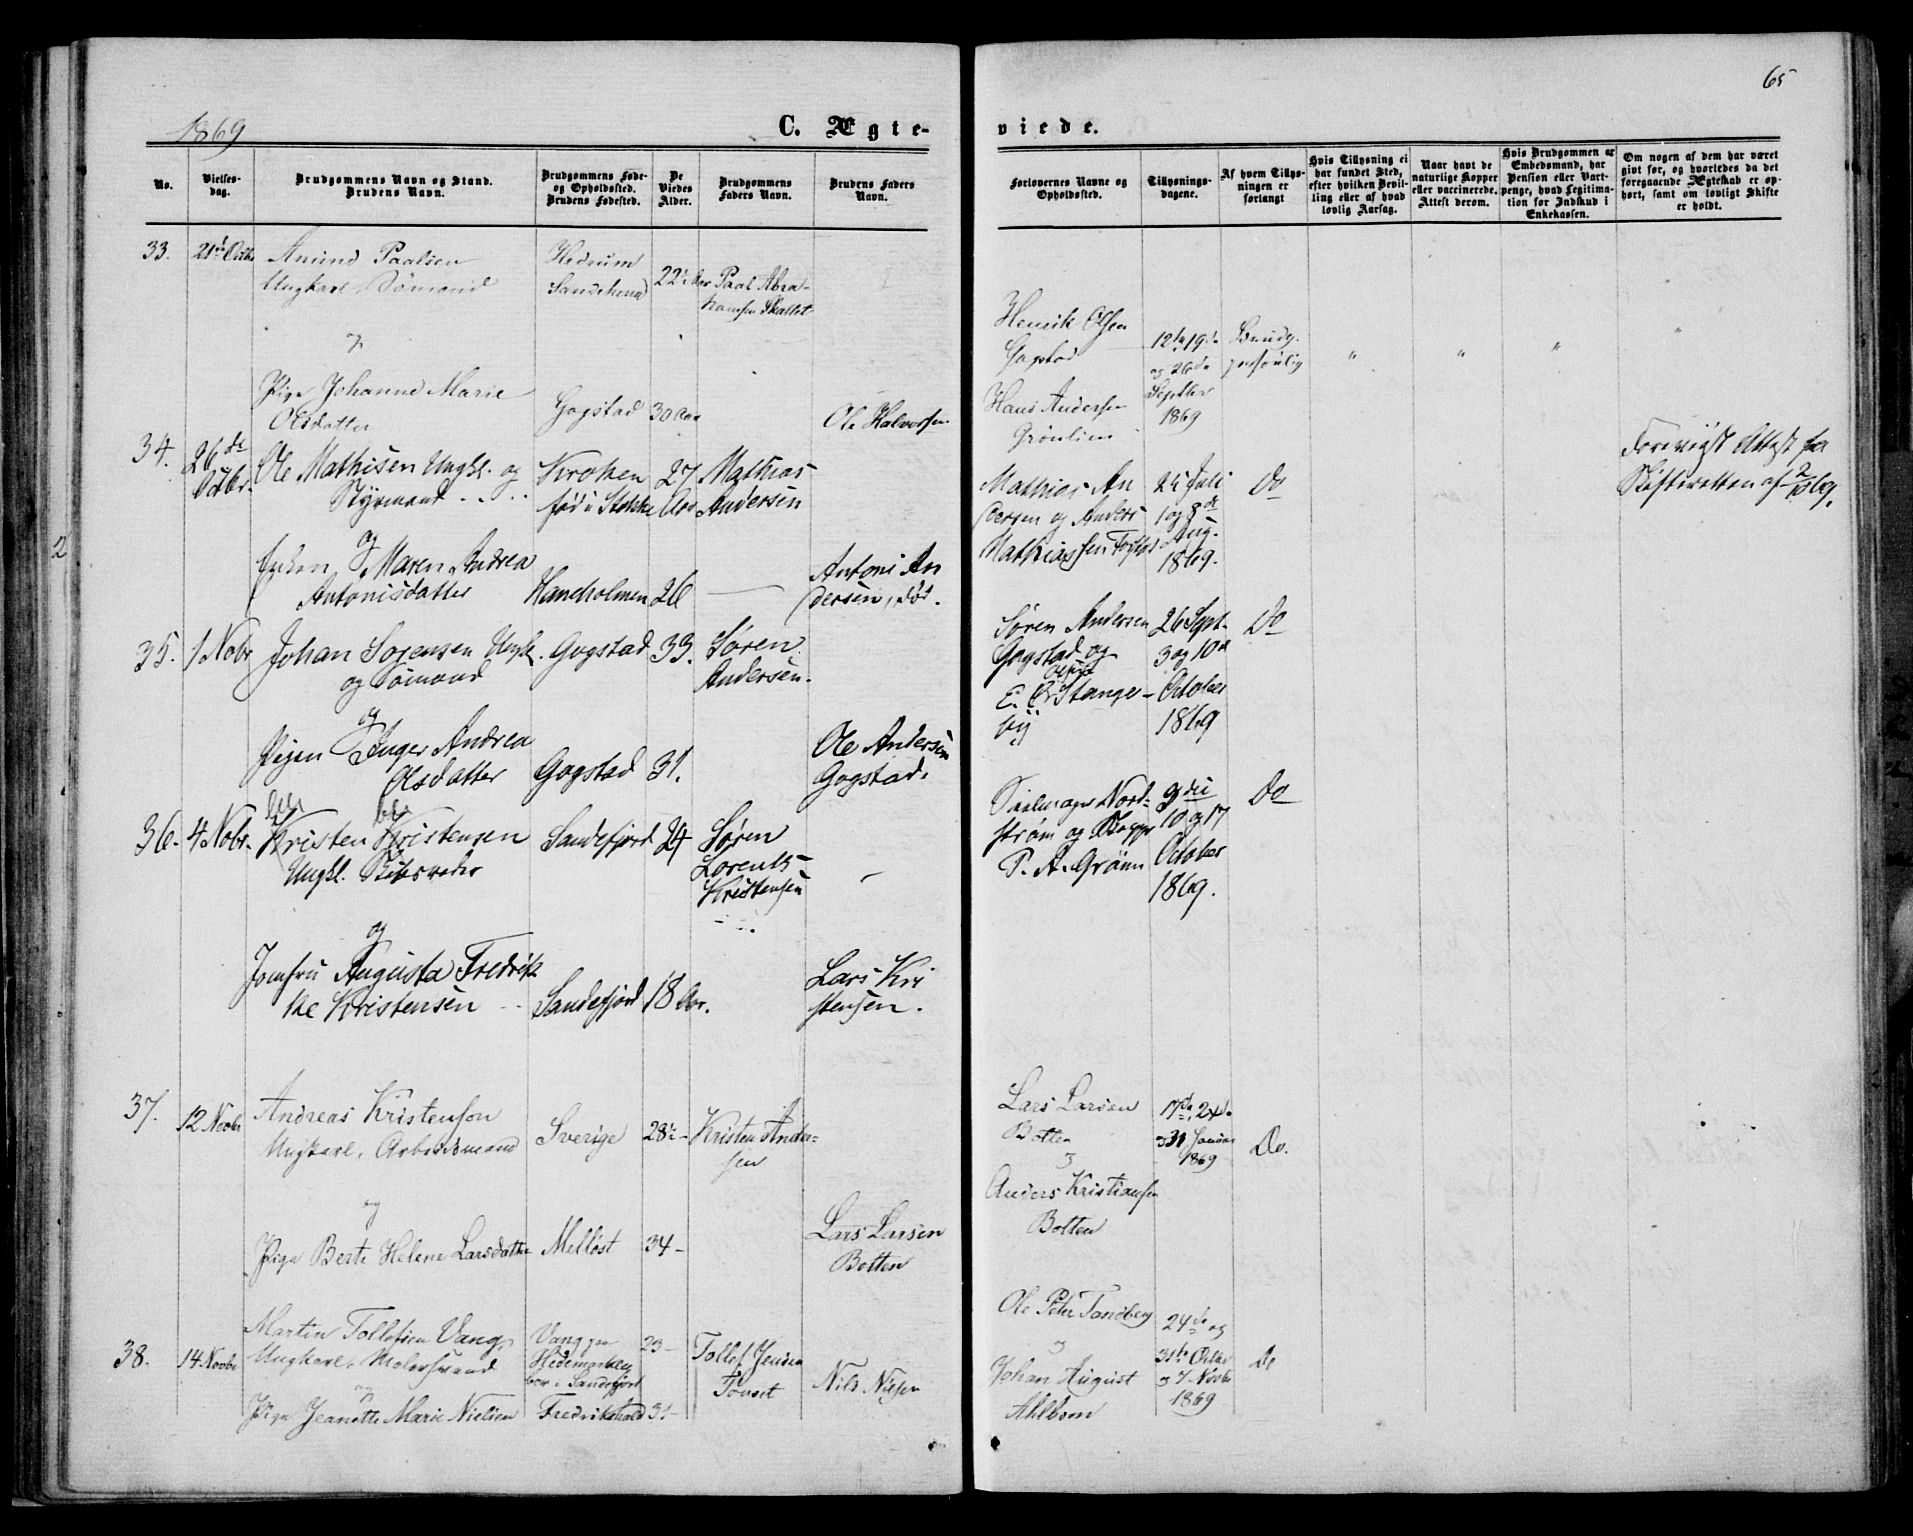 65
1869
C. Ægte-
viede.
No.
Vielses-
dag.
Brudgommens Navn og Stand.
Brudens Navn.
Brudgommens Føde-
og Opholdssted.
Brudens Fødested.
De
Viedes
Alder.
Brudgommens
Faders Navn.
Brudens Faders
Navn.
Forlovernes Navne og
Opholdssted.
Tillysnings-
dagene.
Af hvem Tillys-
ningen er
forlangt
Hvis Tillysning ei
har fundet Sted,
efter hvilken Bevil-
ling eller af hvad
lovlig Aarsag.
Naar havt de
naturlige Kopper
eller vaccinerede.
Attest derom.
Hvis Brudgommen er
Embedsmand, har
Pension eller Vart-
penge, hvad Legitima-
tion for Indskud i
Enkekassen.
Om nogen af dem har været
gift før, og hvorledes da det
foregaaende Ægteskab er op-
hørt, samt om lovligt Skifte
er holdt.
33. 21de Octbr
Amund Paalsen
Ungkarl, Sømand
Hedrum
22
Paal Abra-
hamsen Skallist
og
Pige Johanne Marie
Olsdatter
Gogstad 30 Aar
Ole Halvorsen
Henrik Olsen
Gogstad
Hans Andersen
Grønlien
12te 19de
og 26de
Septbr
1869
Brudg.
personlig
" " " "
34. 26de
Octbr.
Ole Mathisen Ungkl. og
Styrmand
Kroken
fød i Stokke
27
Aar
Mathias
Andersen
og
Enken Maren Andrea
Antonisdatter
Haneholmen 26 —
Antoni An
dersen, død.
Mathias An
dersen og Anders
Mathiassen
25 Juli
1 og 8de
Aug.
1869.
Do
Forevigst Attest fra
Skifteretten af
35. 1 Nobr
Johan Sørensen Ungk.
og Sømand
Gogstad 33.
Søren
Andersen.
og
Pigen Inger Andrea
Olsdatter
Gogstad 31.
Ole Andersen
Gogstad.
Søren Andersen
Gogstad og
E. Olsen Stange-
by
26 Sept.
3 og 10de
October
1869
Do
36. 4 Nobr.
Kristen Kristensen
Ungkl. Skibsreder
Sandefjord 24
Søren
Lorents
Kristensen
—
og
Jomfru Augusta Fredrik
ke Kristensen
Sandefjord 18 Aar.
Lars Kri
stensen.
Seilmager Nord-
strøm og Skipper
P. A. Grønn
3die
10 og 17
October
1869.
Do
37. 12 Novbr
Andreas Kristensen
Ungkarl, Arbeidsmand
Sverige 28
Kristen Ander-
sen
og
Pige Berte Helene Larsdatter
Melløst 34 –
Lars Larsen
Botten
Lars Larsen
Botten
og
Anders Kristiansen
Botten
17de, 24de
og 31 Januar
1869
Do.
38. 14 Novbr
Martin Tollefsen Vang,
Ungkarl, Malersvend
Vang paa
Hedemarken
bor i Sandefjord
23 –
Tollef Jensen
og
Pige Jeanette Marie Nielsen
Fredrikshald 31 –
Nils Nilsen
Ole Peter Tandberg
og
Johan August
Ahlbom
24de og
31te Octbr
og 7 Novbr
1869
Do